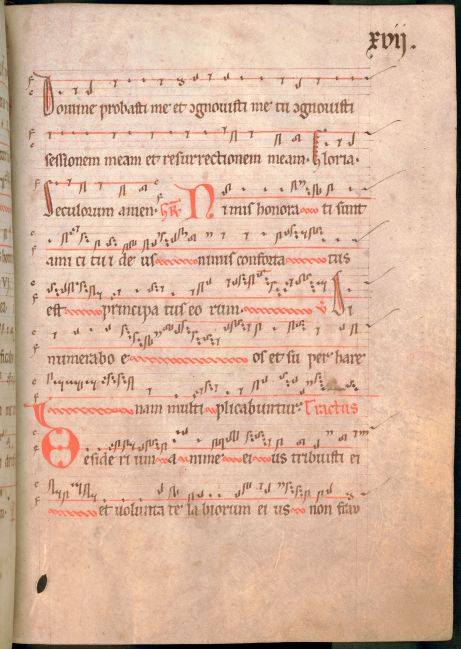 xvij.
Domine probasti me et ↄgnovisti me tu ↄgnovisti
sessionem meam et resurrectionem meam. Gloria.
Seculorum amen. Nimis honora ti sunt
ami ci tu i de us nimis conforta tus
est principa tus eo rum. V Di
numerabo e os et su per hare
nam multi plicabuntur Tractus
Deside ri um a nime ei us tribuisti ei
et volunta te la biorum ei us non frau